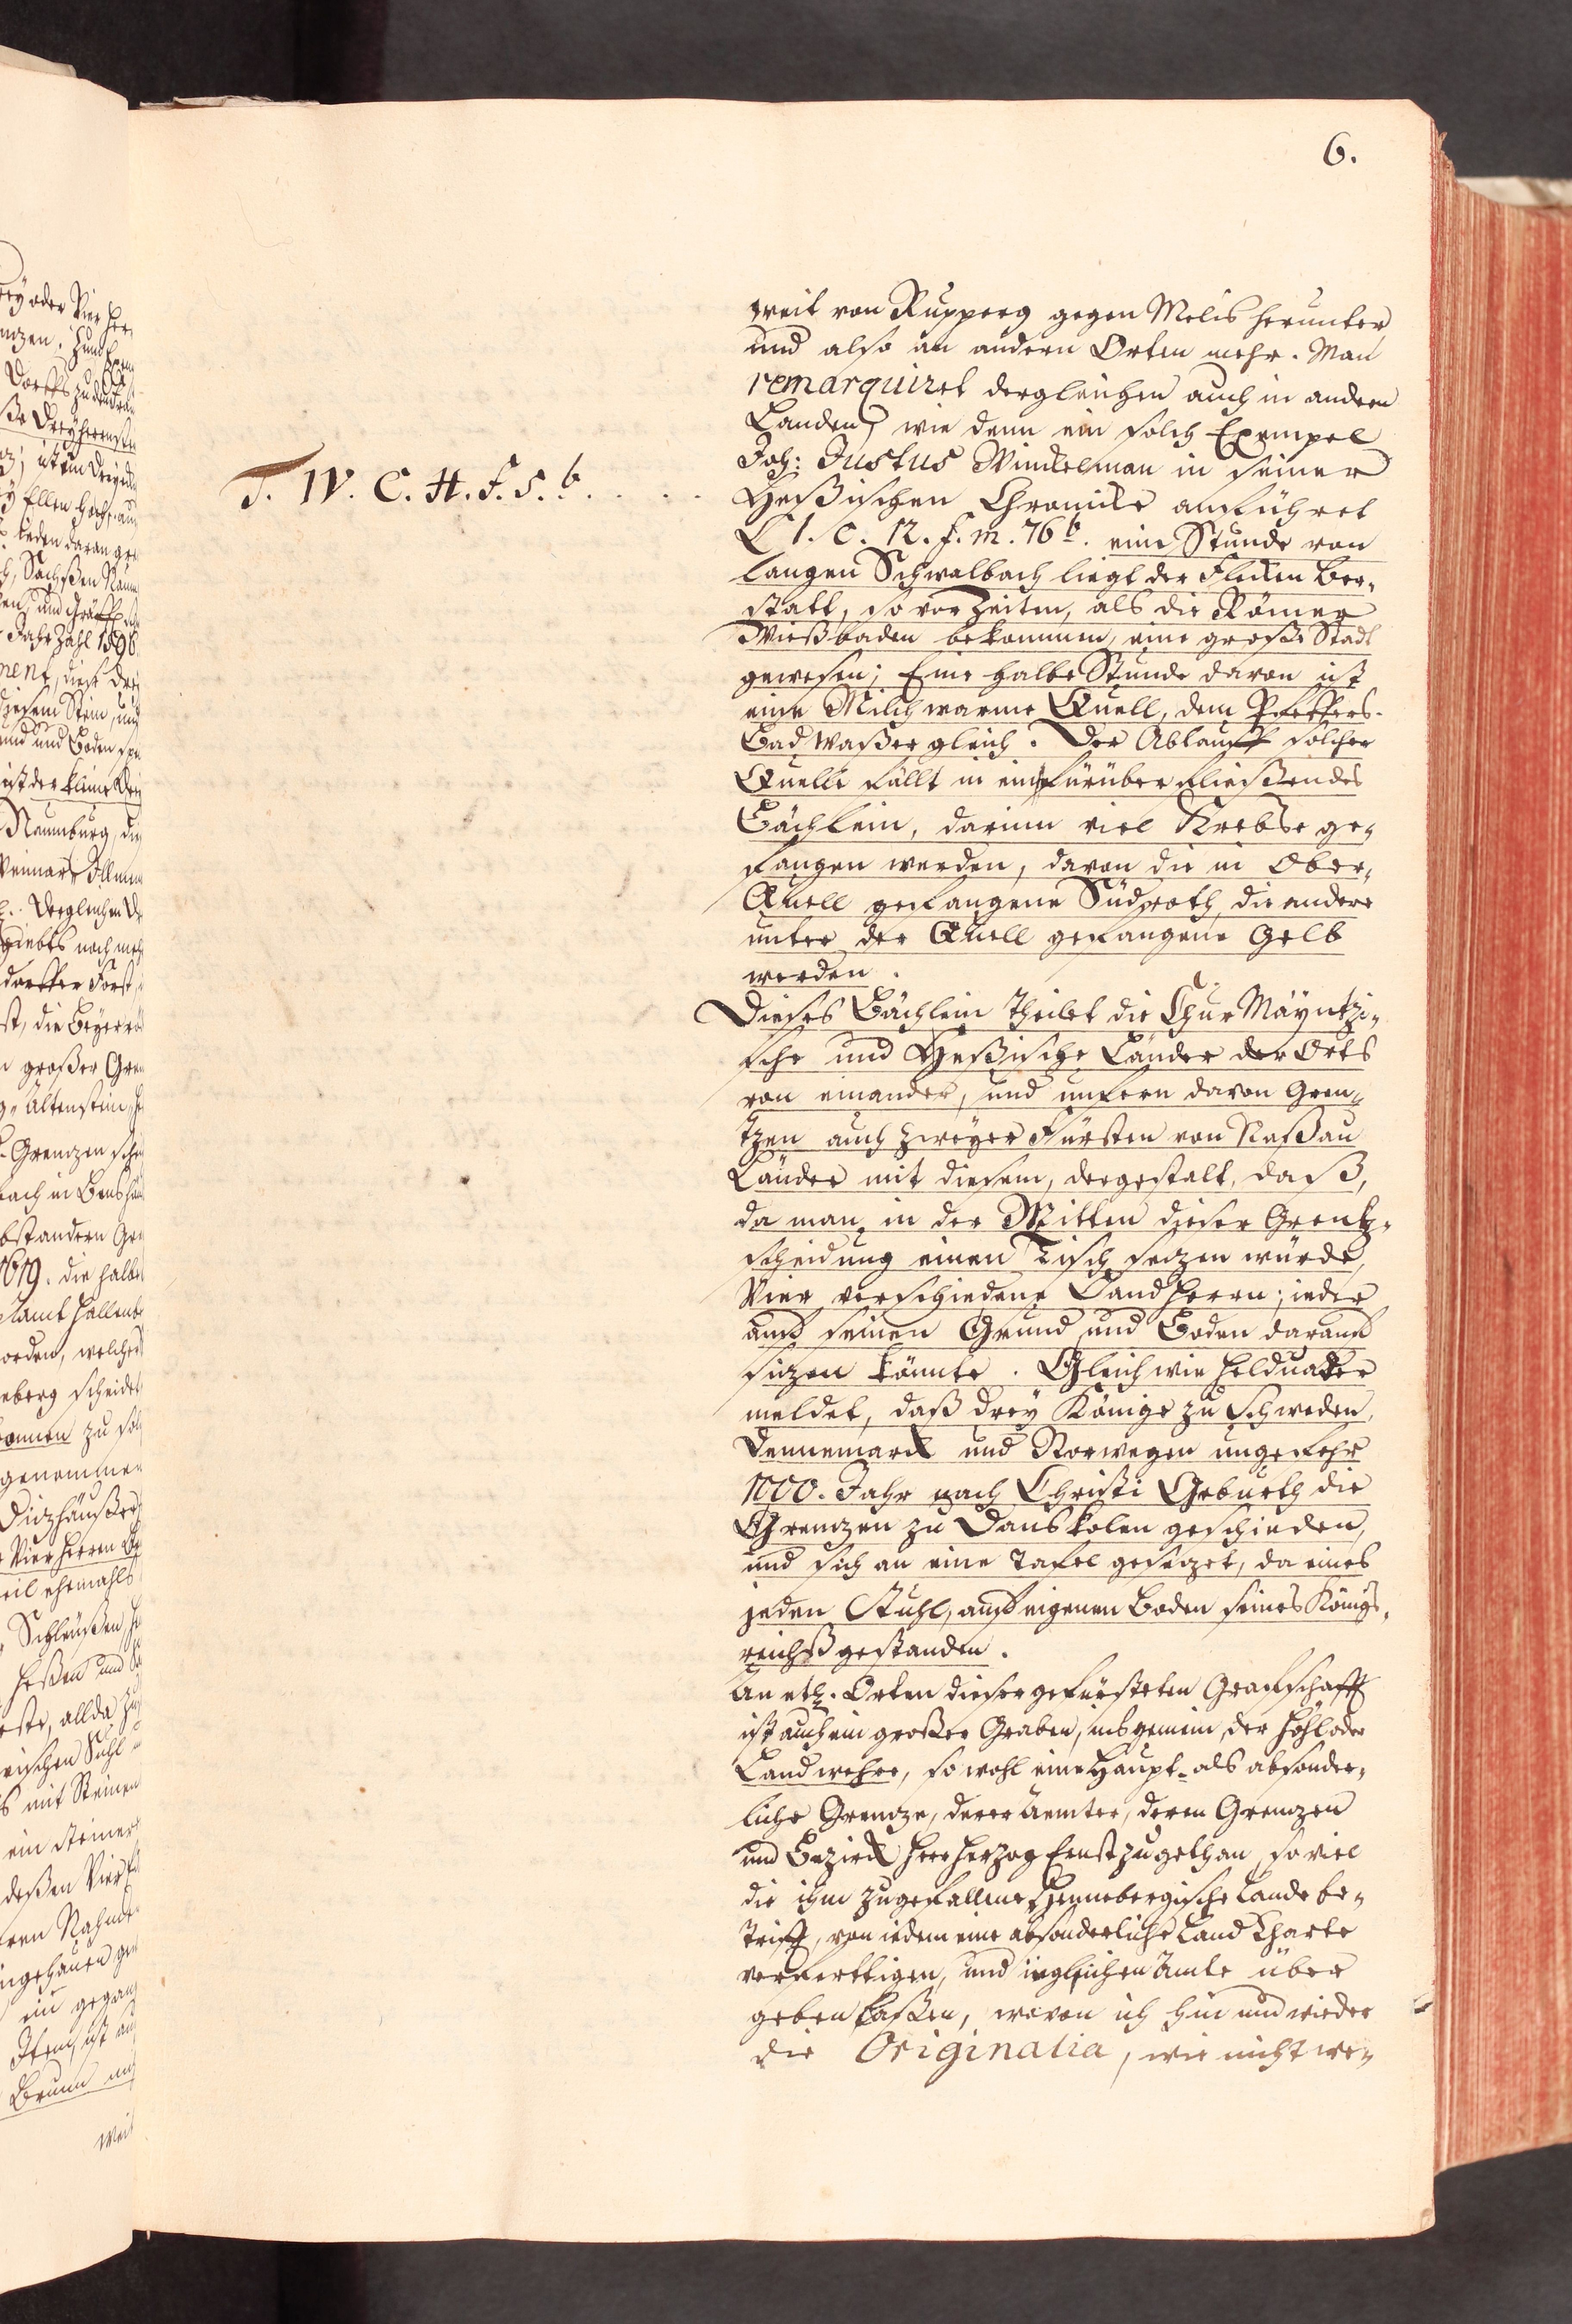 6.
weit von Rupperg gegen Melis herunter
und also an andern Orten mehr. Man
remarquiret dergleichen auch in andern
Landen, wie denn ein solch Exempel
Joh: Justus Winckelman in seiner
T. W. C. H. f. 5. b. . . . .
Heßischen Chronicke anführet
L 1. c. 12. f. m. 76 b. eine Stunde von
langen Schwalbach liegt der Flecken Ber-
statt, so vor Zeiten, als die Römer
Wießbaden bekommen, eine große Stadt
gewesen; Eine halbe Stunde davon ist
eine Milch warme Quell, dem Pfeffers-
Bad Waßer gleich. Der Ablauff solcher
Quelle fällt in ein fürüber fließendes
Bächlein, darinn viel Krebse ge-
fangen werden, davon die in Ober-
Quell gefangene Südroth, die andere
unter der Quell gefangene Gelb
werden.
Dieses Bächlein theilet die Chur Mäyntzi-
sche und Heßische Länder der Orts
von einander, und unfern davon Gren-
tzen auch zweyer Fürsten von Naßau
Länder mit diesem, dergestalt, daß,
da man in der Mitten dieser Grentz-
scheidung einen Tisch sezen würde,
Vier verschiedene Landherrn; ieder
auff seinen Grund und Boden darauff
sizen könnte. Gleich wie Helduader
meldet, daß drey Könige zu Schweden,
Dennemarck und Norwegen ungefehr
1000. Jahr nach Christi Geburth die
Grenzen zu Danskolen geschieden,
und sich an eine Tafel gesezet, da eines
jeden Stuhl, auff eigenen Boden seines Königs-
reichß gestanden.
An etl. Orten dieser gefürsteten Graffschafft
ist auch ein großer Graben, ins gemein, der Höhl oder
Landwehre, so wohl eine Haupt- als absonder-
liche Grenze, derer Aemter, deren Grenzen
und Bezirck Herr Herzog Ernst zugethan, so viel
die ihm zugefallene Hennebergische Lande be-
trifft, von iedem eine absonderliche Land Charte
verferttigen, und ieglichen Amte über
geben laßen, wovon ich hin und wieder
die Originalia, wie nicht we-